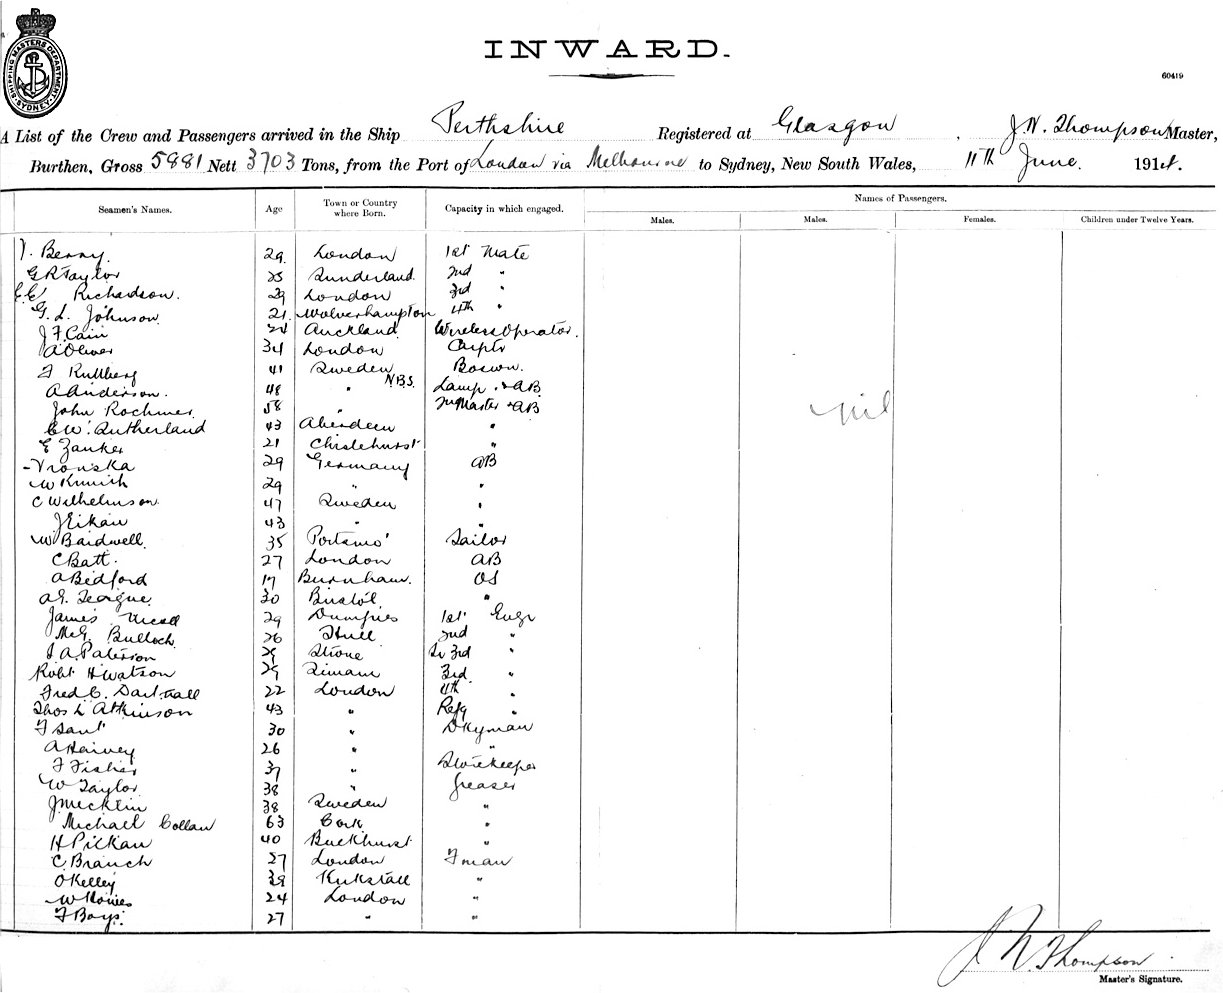 SHIPPING MASTERS DEPARTMENT SYDNEY
INWARD.
60419
A List of the Crew and Passengers arrived in the Ship Perthshire Registered at Glasgow, J.N. Thompson Master,
Burthen, Gross 5881 Nett 3703 Tons, from the Port of London via Melbourne to Sydney, New South Wales, 11th June 1914.
Seamen's Names. Age Town or Country where Born. Capacity in which engaged. Names of Passengers.
Males. Males. Females. Children under Twelve Years.
Berry 29 London 1st Mate
G R Taylor 25 Sunderland 2nd "
Richardson 29 London 3rd "
G. L. Johnson 21 Wolverhampton 4th "
J F Cain Auckland Wireless Operator.
A Oliver 34 London Carptr
41 Sweden Boswn.
A Anderson. 48 " N.B.S. Lamp & AB
John 58 " & AB
nil
C W. Sutherland 43 Aberdeen "
E Zanker 21 Chislehurst "
Vronska 29 Germany AB
W 29 " "
C Wilhelmson 47 Sweden "
J Eikan 43 " "
W Bardwell. 35 Sailor
C Batt. 27 London AB
A Bedford 17 Burnham. OS
A. G. Teague. 30 Bristol "
James 29 Dumfries 1st Engr
Bulloch 26 Hull 2nd "
J A Paterson 29 Sr 3rd "
Robt H Watson 29 3rd "
Fred C. 22 London 4th "
Thos L Atkinson 43 " Refg "
F 30 " Dkyman
A Harvey 26 " "
F Fisher 37 " Storekeeper
W Taylor 38 " Greaser
J Mecklin 38 Sweden "
Michael Collan 63 Cork "
H Pickan 40 Buckhurst "
C. Branch 27 London Fman
O Kelley 39 Kirkstall "
W 24 London "
F Bays. 27 " "
J N. Thompson
Master's Signature.